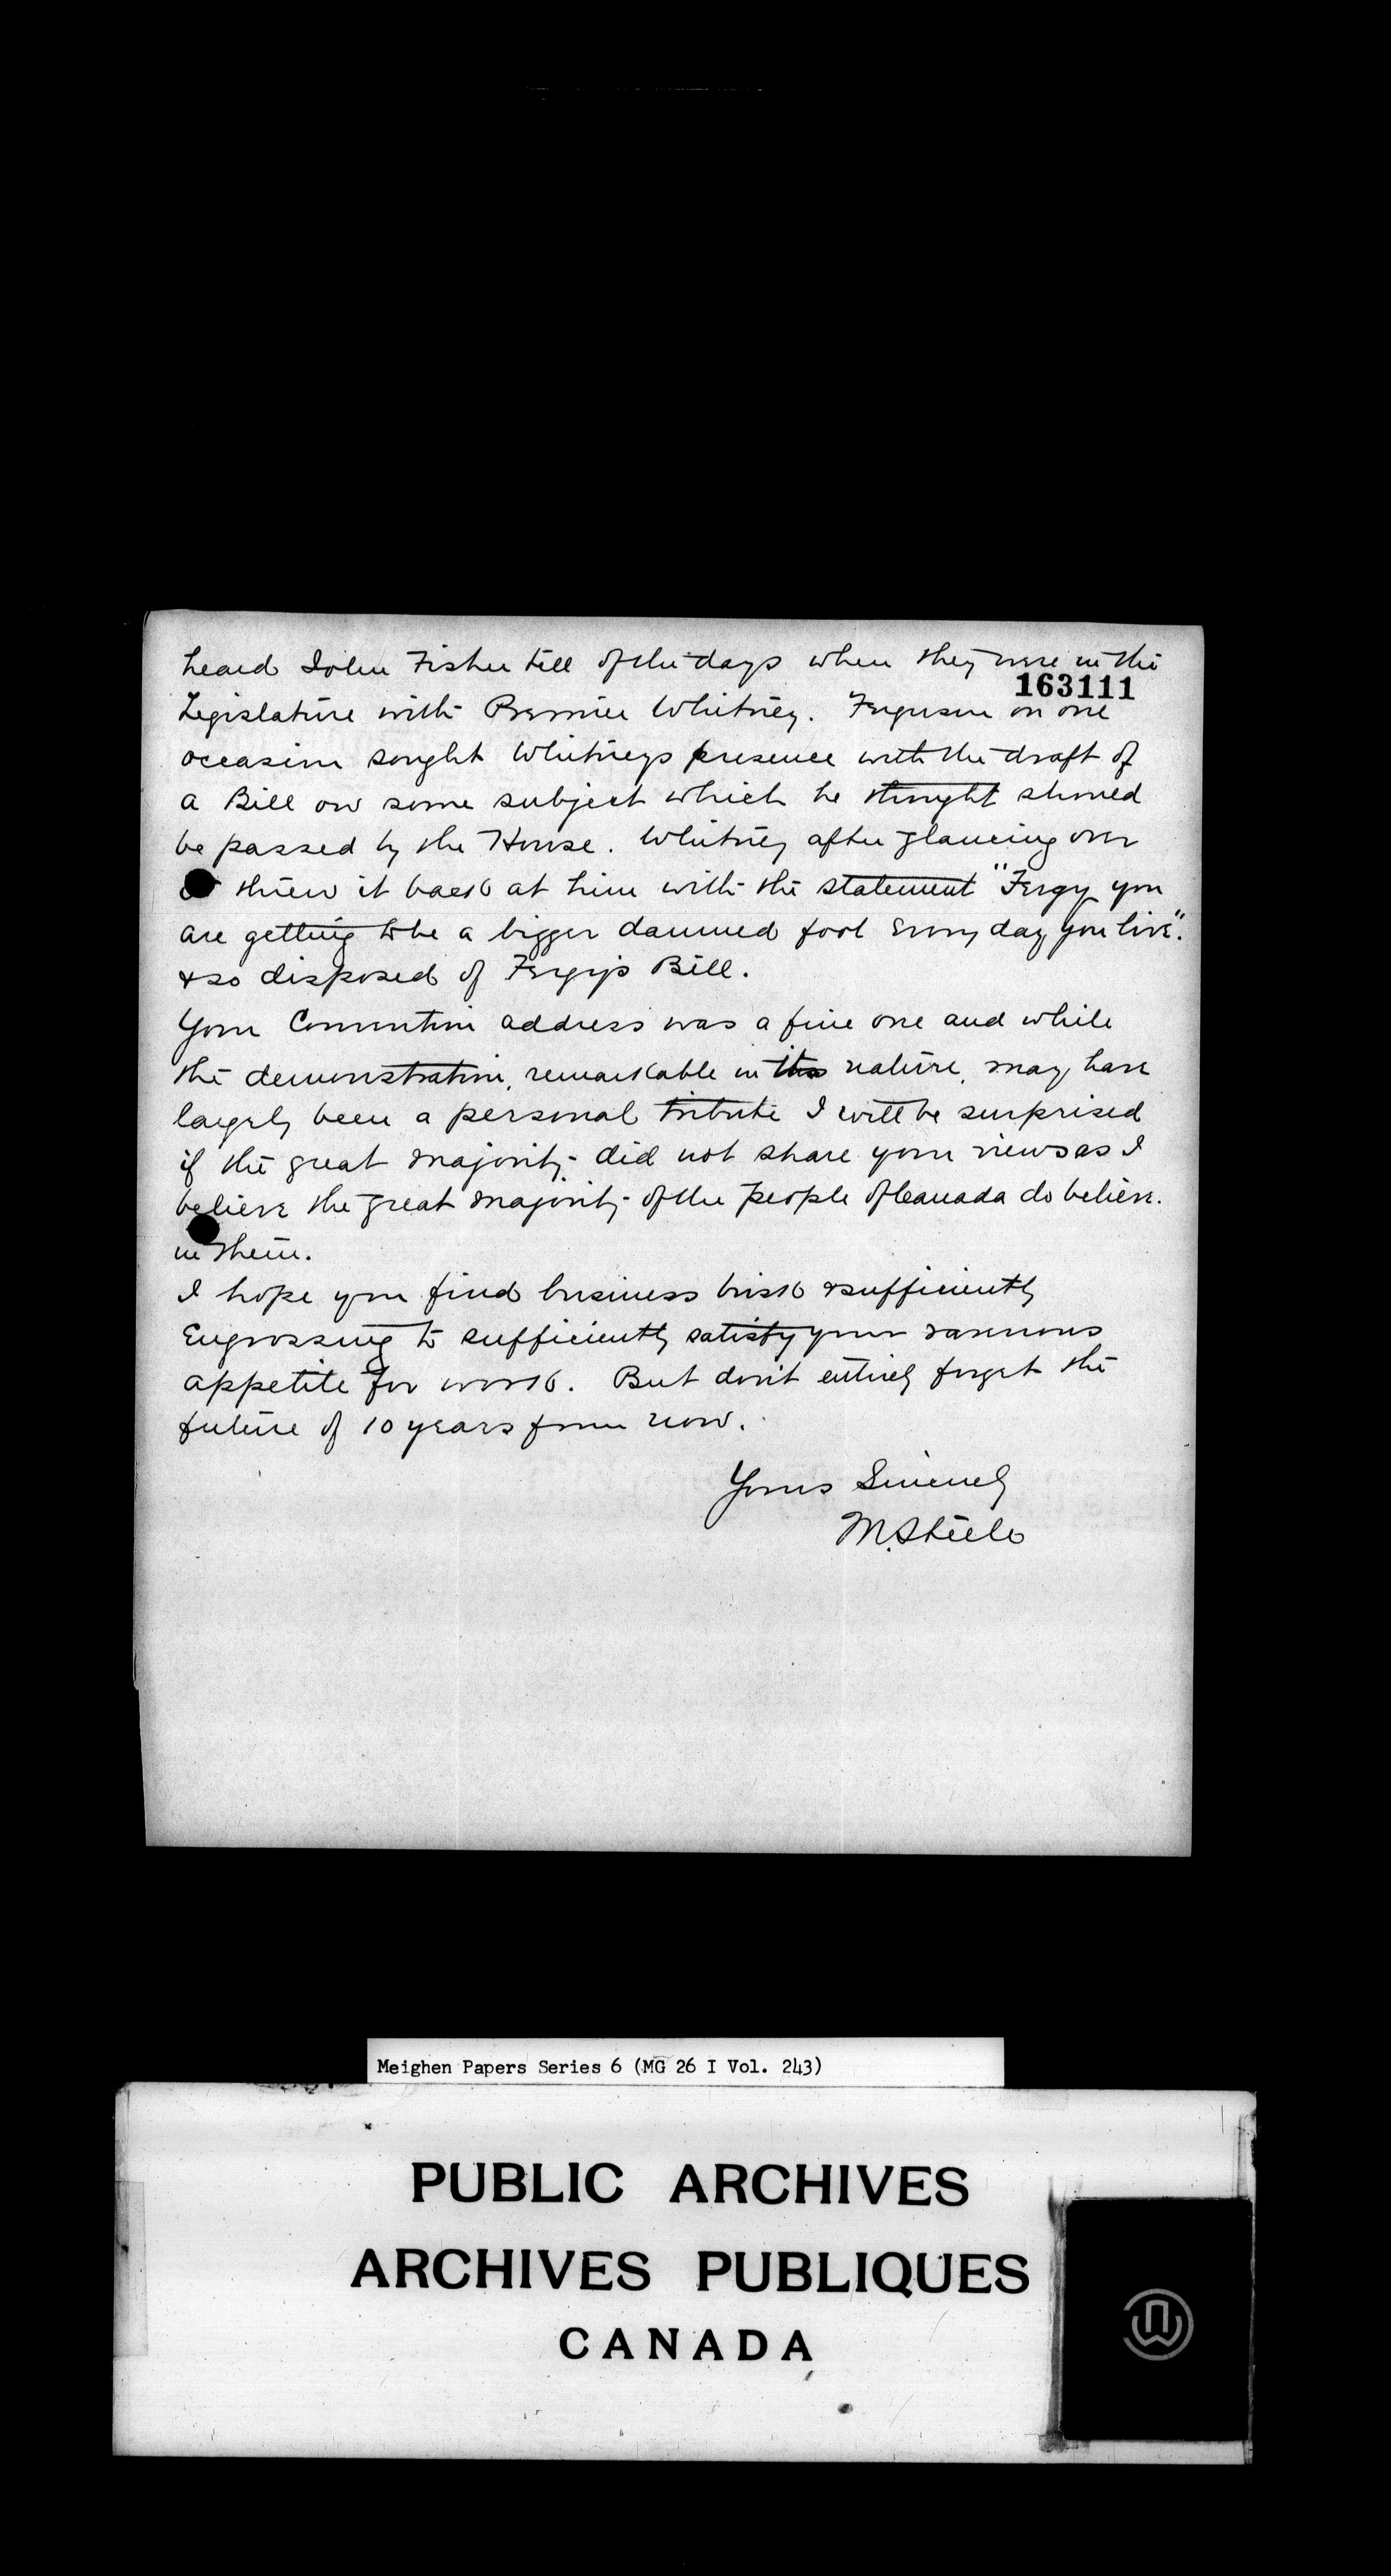 heard John Fisher tell of the days when they were in the
163111
Legislature with Premier Whitney. Ferguson on one
occasion sought Whitneys presence with the draft of
a Bill on some subject which he thought should
be passed by the House. Whitney after glancing over
threw it back at him with the statement "Fergy you
are getting to be a bigger damned fool every day you live".
& so disposed of Fergy's Bill.
Your Convention address was a fine one and while
the demonstration, remarkable in its nature, may have
largely been a personal tribute I will be surprised
if the great majority did not share your views as I
believe the great majority of the people of Canada do believe.
in them.
I hope you find business brisk & sufficiently
engrossing to sufficiently satisfy your ravenous
appetite for work. But don't entirely forget the
future of 10 years from now.
Yours Sincerely
M. Steele
Meighen Papers Series 6 (MG 26 I Vol. 243)
PUBLIC ARCHIVES
ARCHIVES PUBLIQUES
CANADA